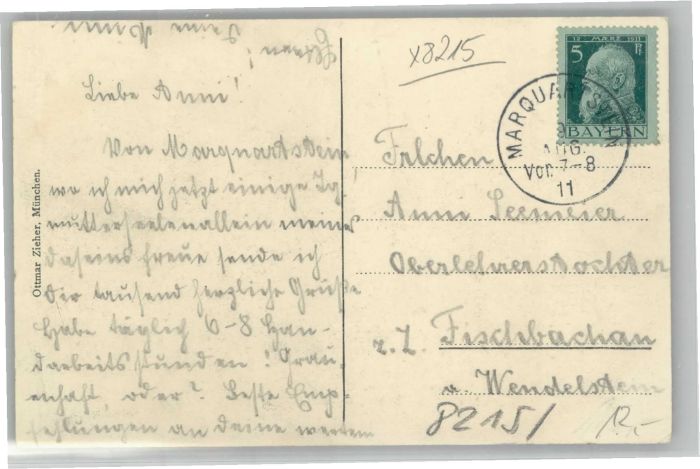 Liebe Anni!
Von Marquartstein,
wo ich mich jetzt einige Tg.
mutterseelenallein meines
Daseins freue sende ich
Dir tausend herzliche Grüße
Habe täglich 6-8 Han-
darbeitsstunden! Grau-
enhaft, oder? Beste Emp-
fehlungen an deine werten
Deine
Ottmar Zieher, München.
x8215
12. MÄRZ 1911
5 Pf.
BAYERN
MARQUARTSTEIN
AUG.
Vor. 7-8
11
Frlchen
Anni Seemeier
Oberlehrerstochter
z. Z. Fischbachau
a. Wendelstein
8215/
12,-